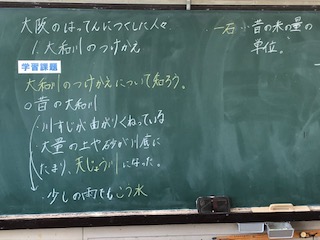 大阪のはってんにつくした人々
1.大和川のつけかえ
学習課題
大和川のつけかえについて知ろう。
○昔の大和川
・川すじが曲がりくねっている
・大量の土や砂が川底に
たまり、天じょう川になった。
・少しの雨でもこう水
一石…昔の米の量の
単位。